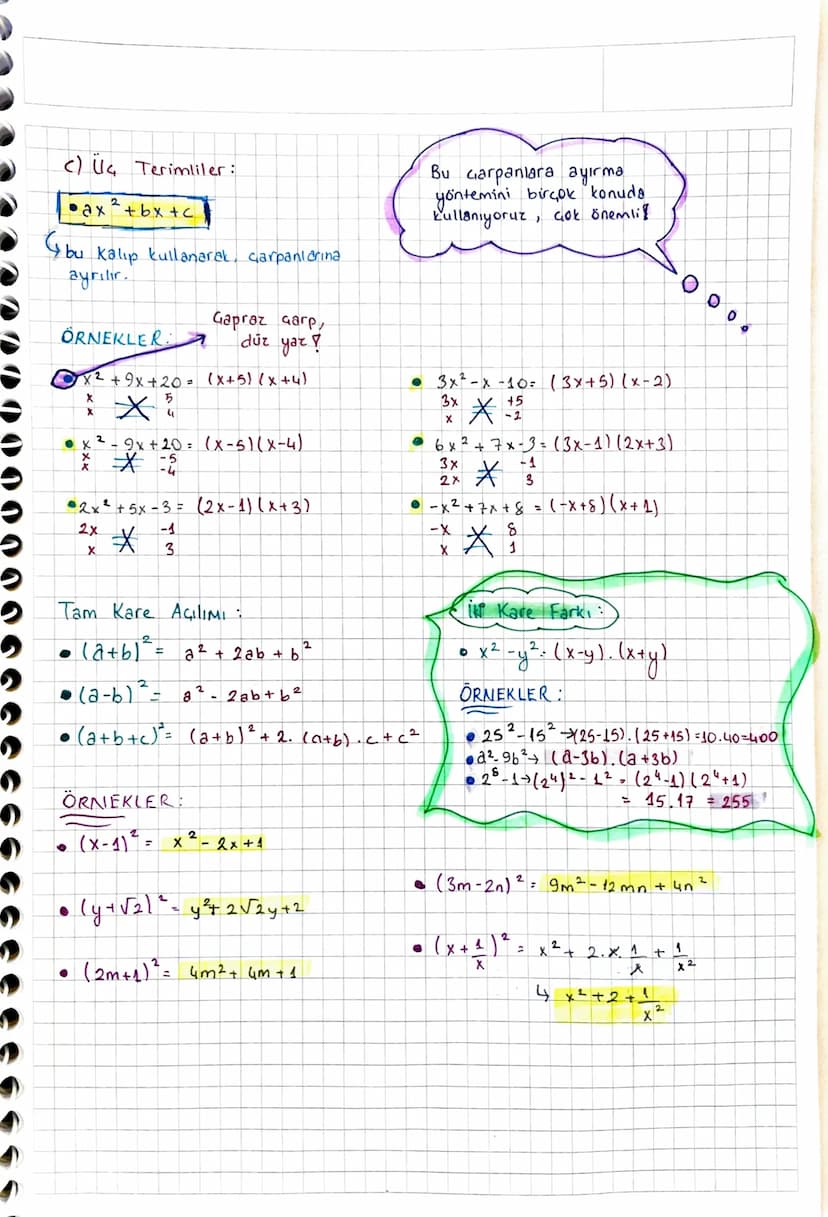 c) Üç Terimliler:
• ax² + bx + c
↳ bu kalıp kullanarak, çarpanlarına
ayrılır.
Bu çarpanlara ayırma
yöntemini birçok konuda
kullanıyoruz, çok önemli!
ÖRNEKLER:
Çapraz çarp,
düz yaz!
• x² + 9x + 20 = (x+5)(x+4)
x 5
x 4
• x² - 9x + 20 = (x-5)(x-4)
x -5
x -4
• 2x² + 5x - 3 = (2x-1)(x+3)
2x -1
x 3
• 3x² - x - 10 = (3x+5)(x-2)
3x +5
x -2
• 6x² + 7x - 3 = (3x-1)(2x+3)
3x -1
2x 3
• -x² + 7x + 8 = (-x+8)(x+1)
-x 8
x 1
Tam Kare Açılımı:
• (a+b)² = a² + 2ab + b²
• (a-b)² = a² - 2ab + b²
• (a+b+c)² = (a+b)² + 2.(a+b).c + c²
İki Kare Farkı:
• x² - y² = (x-y).(x+y)
ÖRNEKLER:
• 25² - 15² → (25-15).(25+15) = 10.40 = 400
• a² - 9b² → (a-3b).(a+3b)
• 2⁸ - 1 → (2⁴)² - 1² = (2⁴-1)(2⁴+1)
= 15.17 = 255
ÖRNEKLER:
• (x-1)² = x² - 2x + 1
• (y+√2)² = y² + 2√2y + 2
• (2m+1)² = 4m² + 4m + 1
• (3m-2n)² = 9m² - 12mn + 4n²
• (x + 1/x)² = x² + 2.x.1/x + 1/x²
↳ x² + 2 + 1/x²